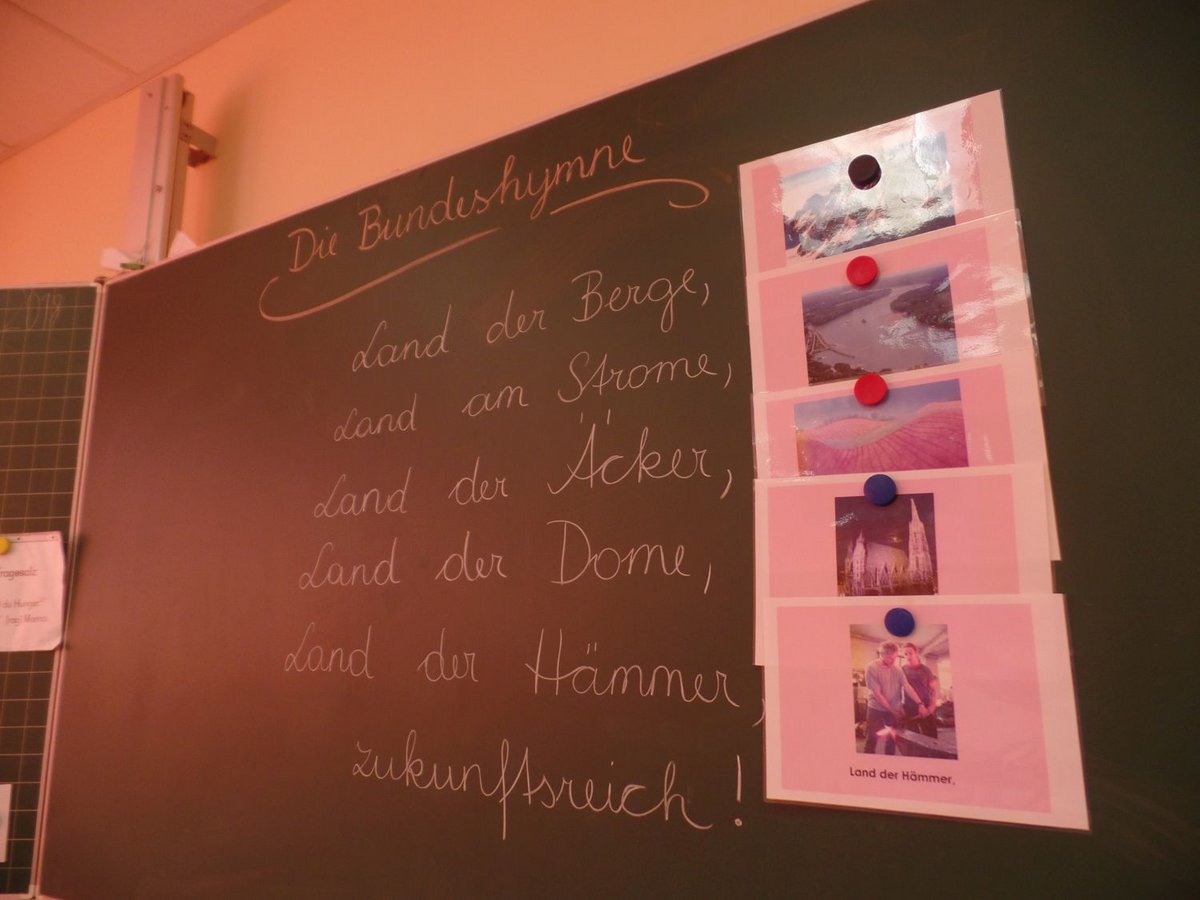 Die Bundeshymne
Land der Berge,
Land am Strome,
Land der Äcker,
Land der Dome,
Land der Hämmer,
zukunftsreich!
Land der Hämmer.
du Hunger
Mama